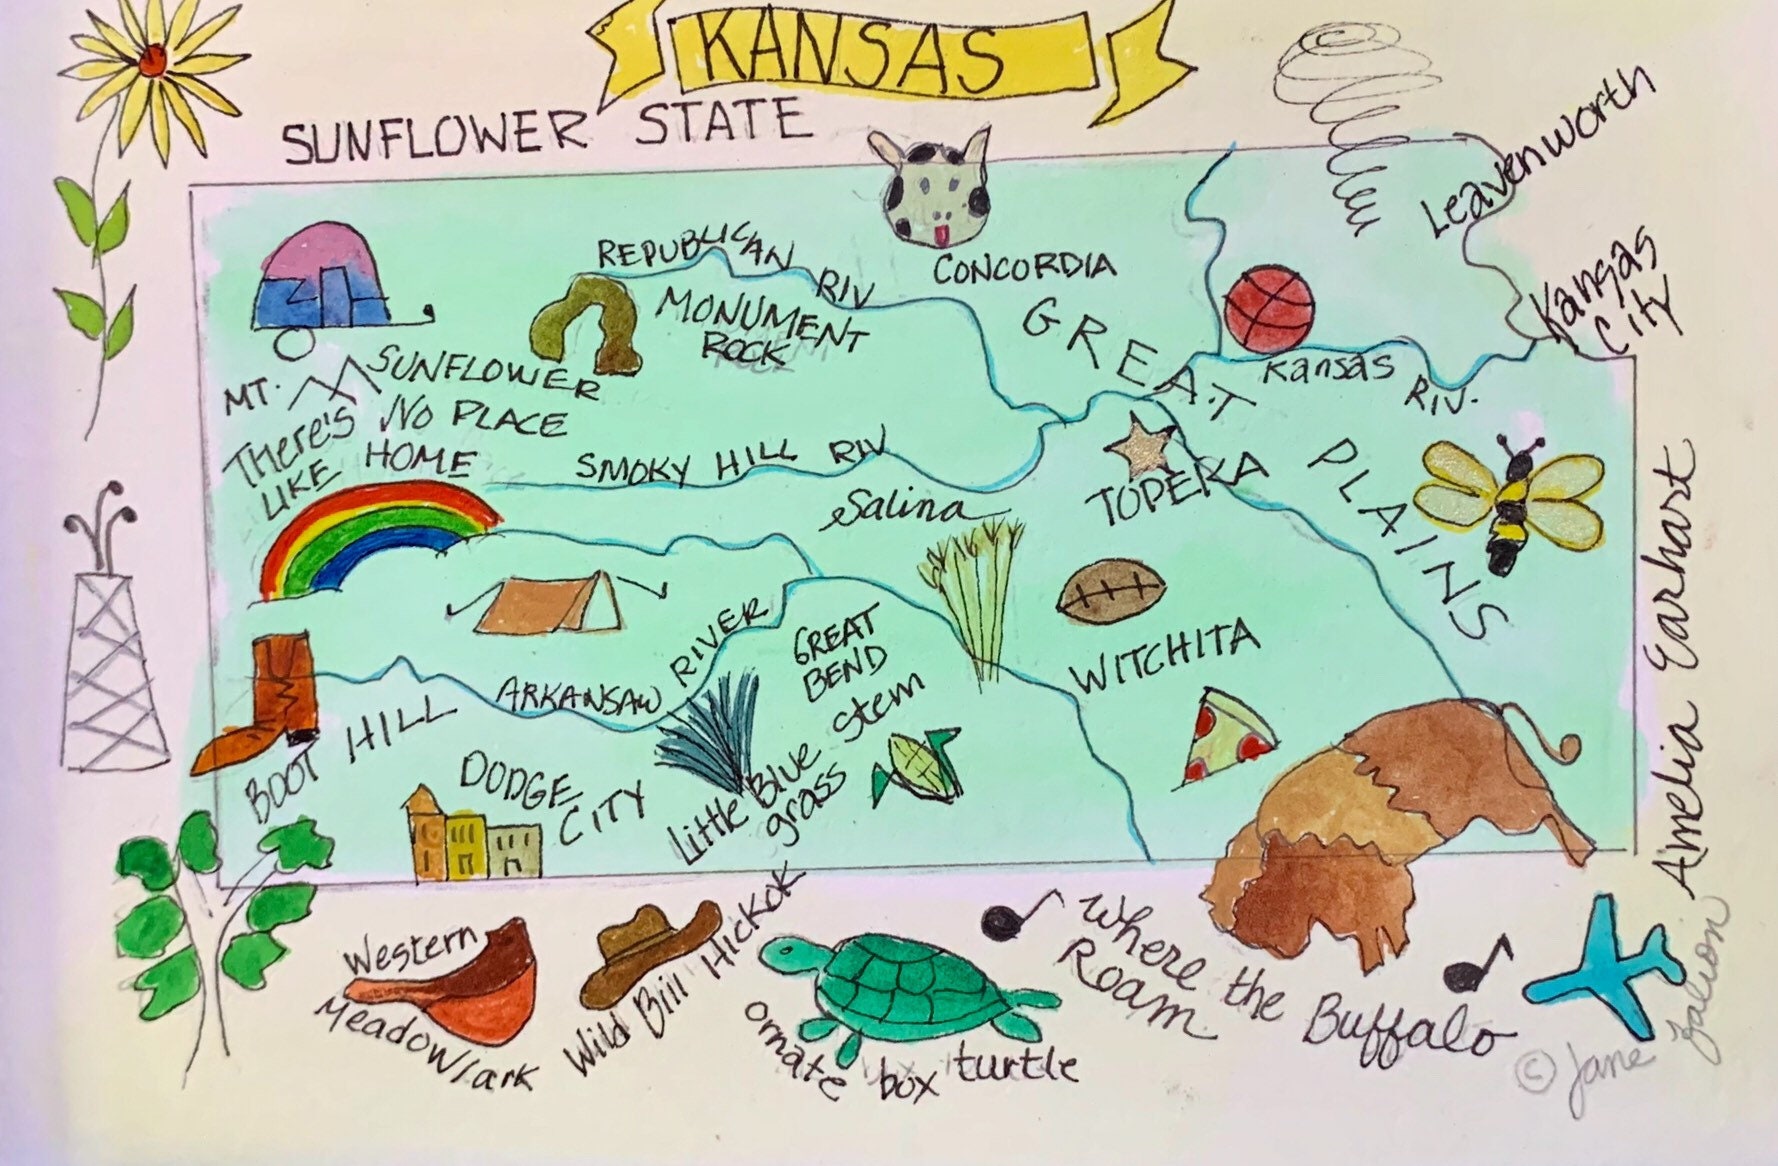 KANSAS
SUNFLOWER STATE
Leavenworth
Kansas
City
REPUBLICAN RIV
CONCORDIA
MONUMENT
ROCK
GREAT PLAINS
Kansas RIV.
MT. SUNFLOWER
THere's NO PLACE
LIKE HOME
SMOKY HILL RIV
Salina
TOPEKA
ARKANSAW RIVER
GREAT
BEND
WITCHITA
BOOT HILL
DODGE
CITY
Little Blue stem
grass
Amelia Earhart
Western
Meadowlark
Wild Bill Hickok
ornate box turtle
Where the Buffalo
Roam
© Jane